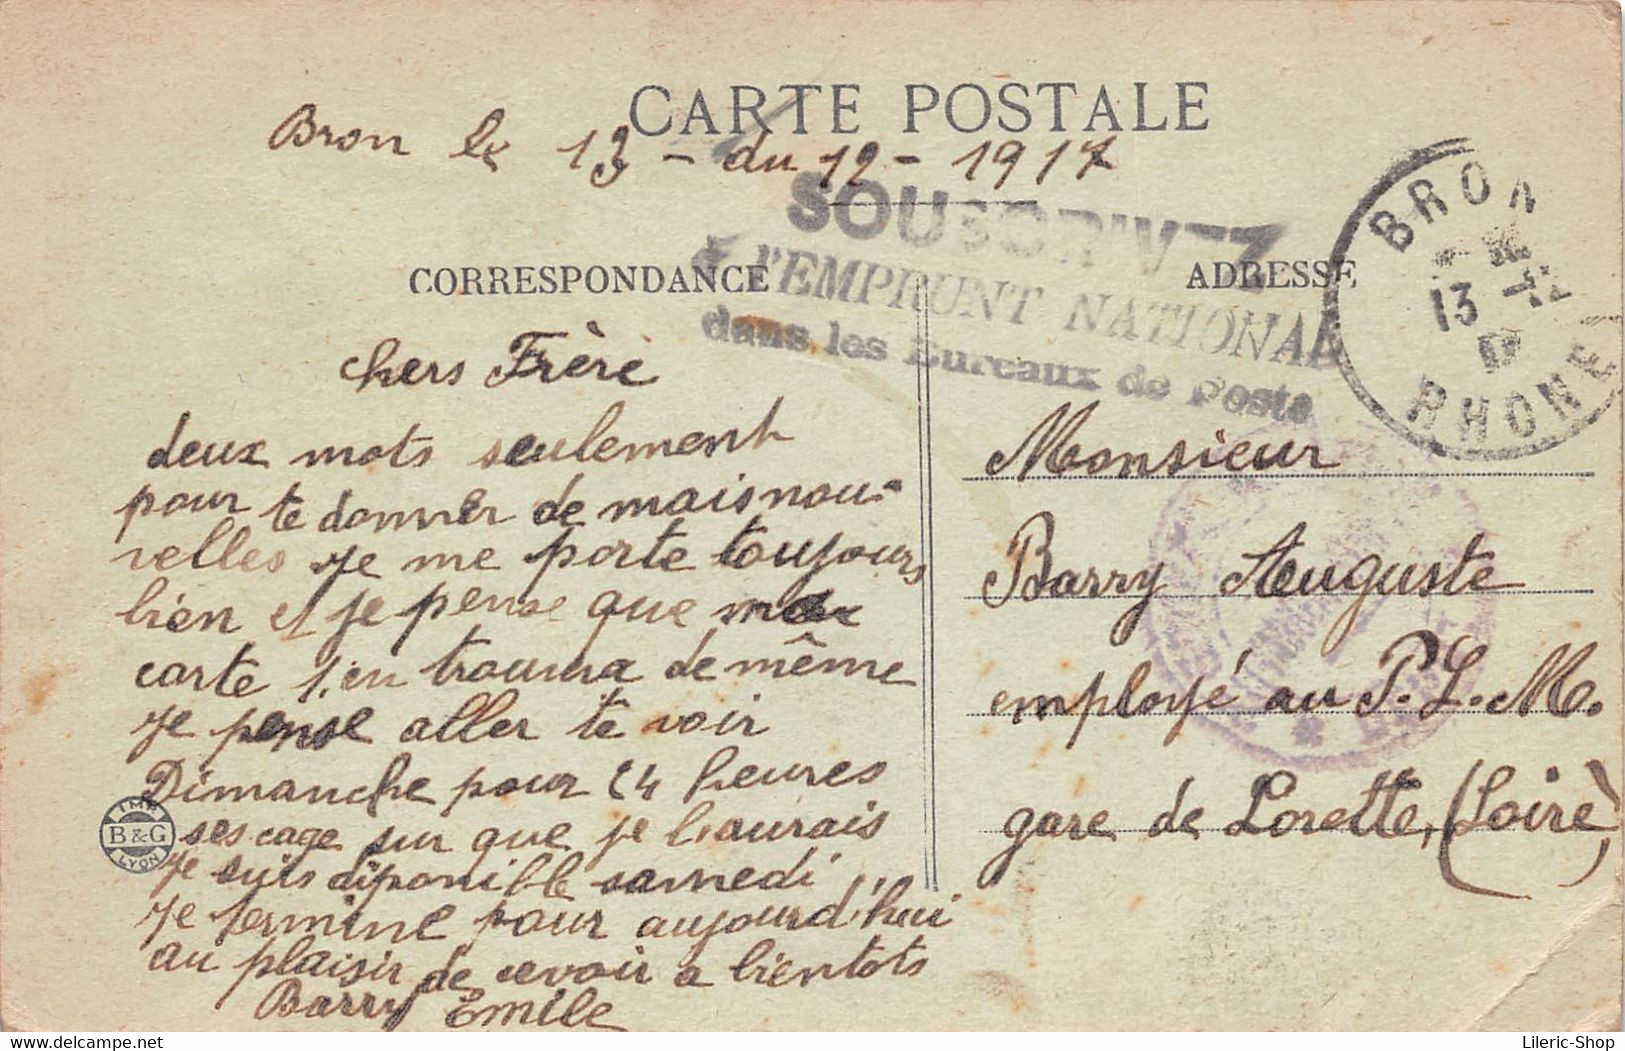 CARTE POSTALE
Bron le 13 - du 12 - 1917
SOUSCRIVEZ
à l'EMPRUNT NATIONAL
dans les Bureaux de Poste
BRON
13 12 17
RHONE
CORRESPONDANCE
ADRESSE
chers Frère
deux mots seulement
pour te donner de mais nou-
velles je me porte toujours
bien et je pense que ma
carte t'en trouvra de même
je pense aller te voir
Dimanche pour 24 heures
ses cage sur que je l'aurais
je suis diponible samedi
je termine pour aujourd'hui
au plaisir de cevoir a bientots
Barry Emile
IMP
B & G
LYON
Monsieur
Barry Auguste
employé au P.L.M.
gare de Lorette, (Loire)
Lileric-Shop